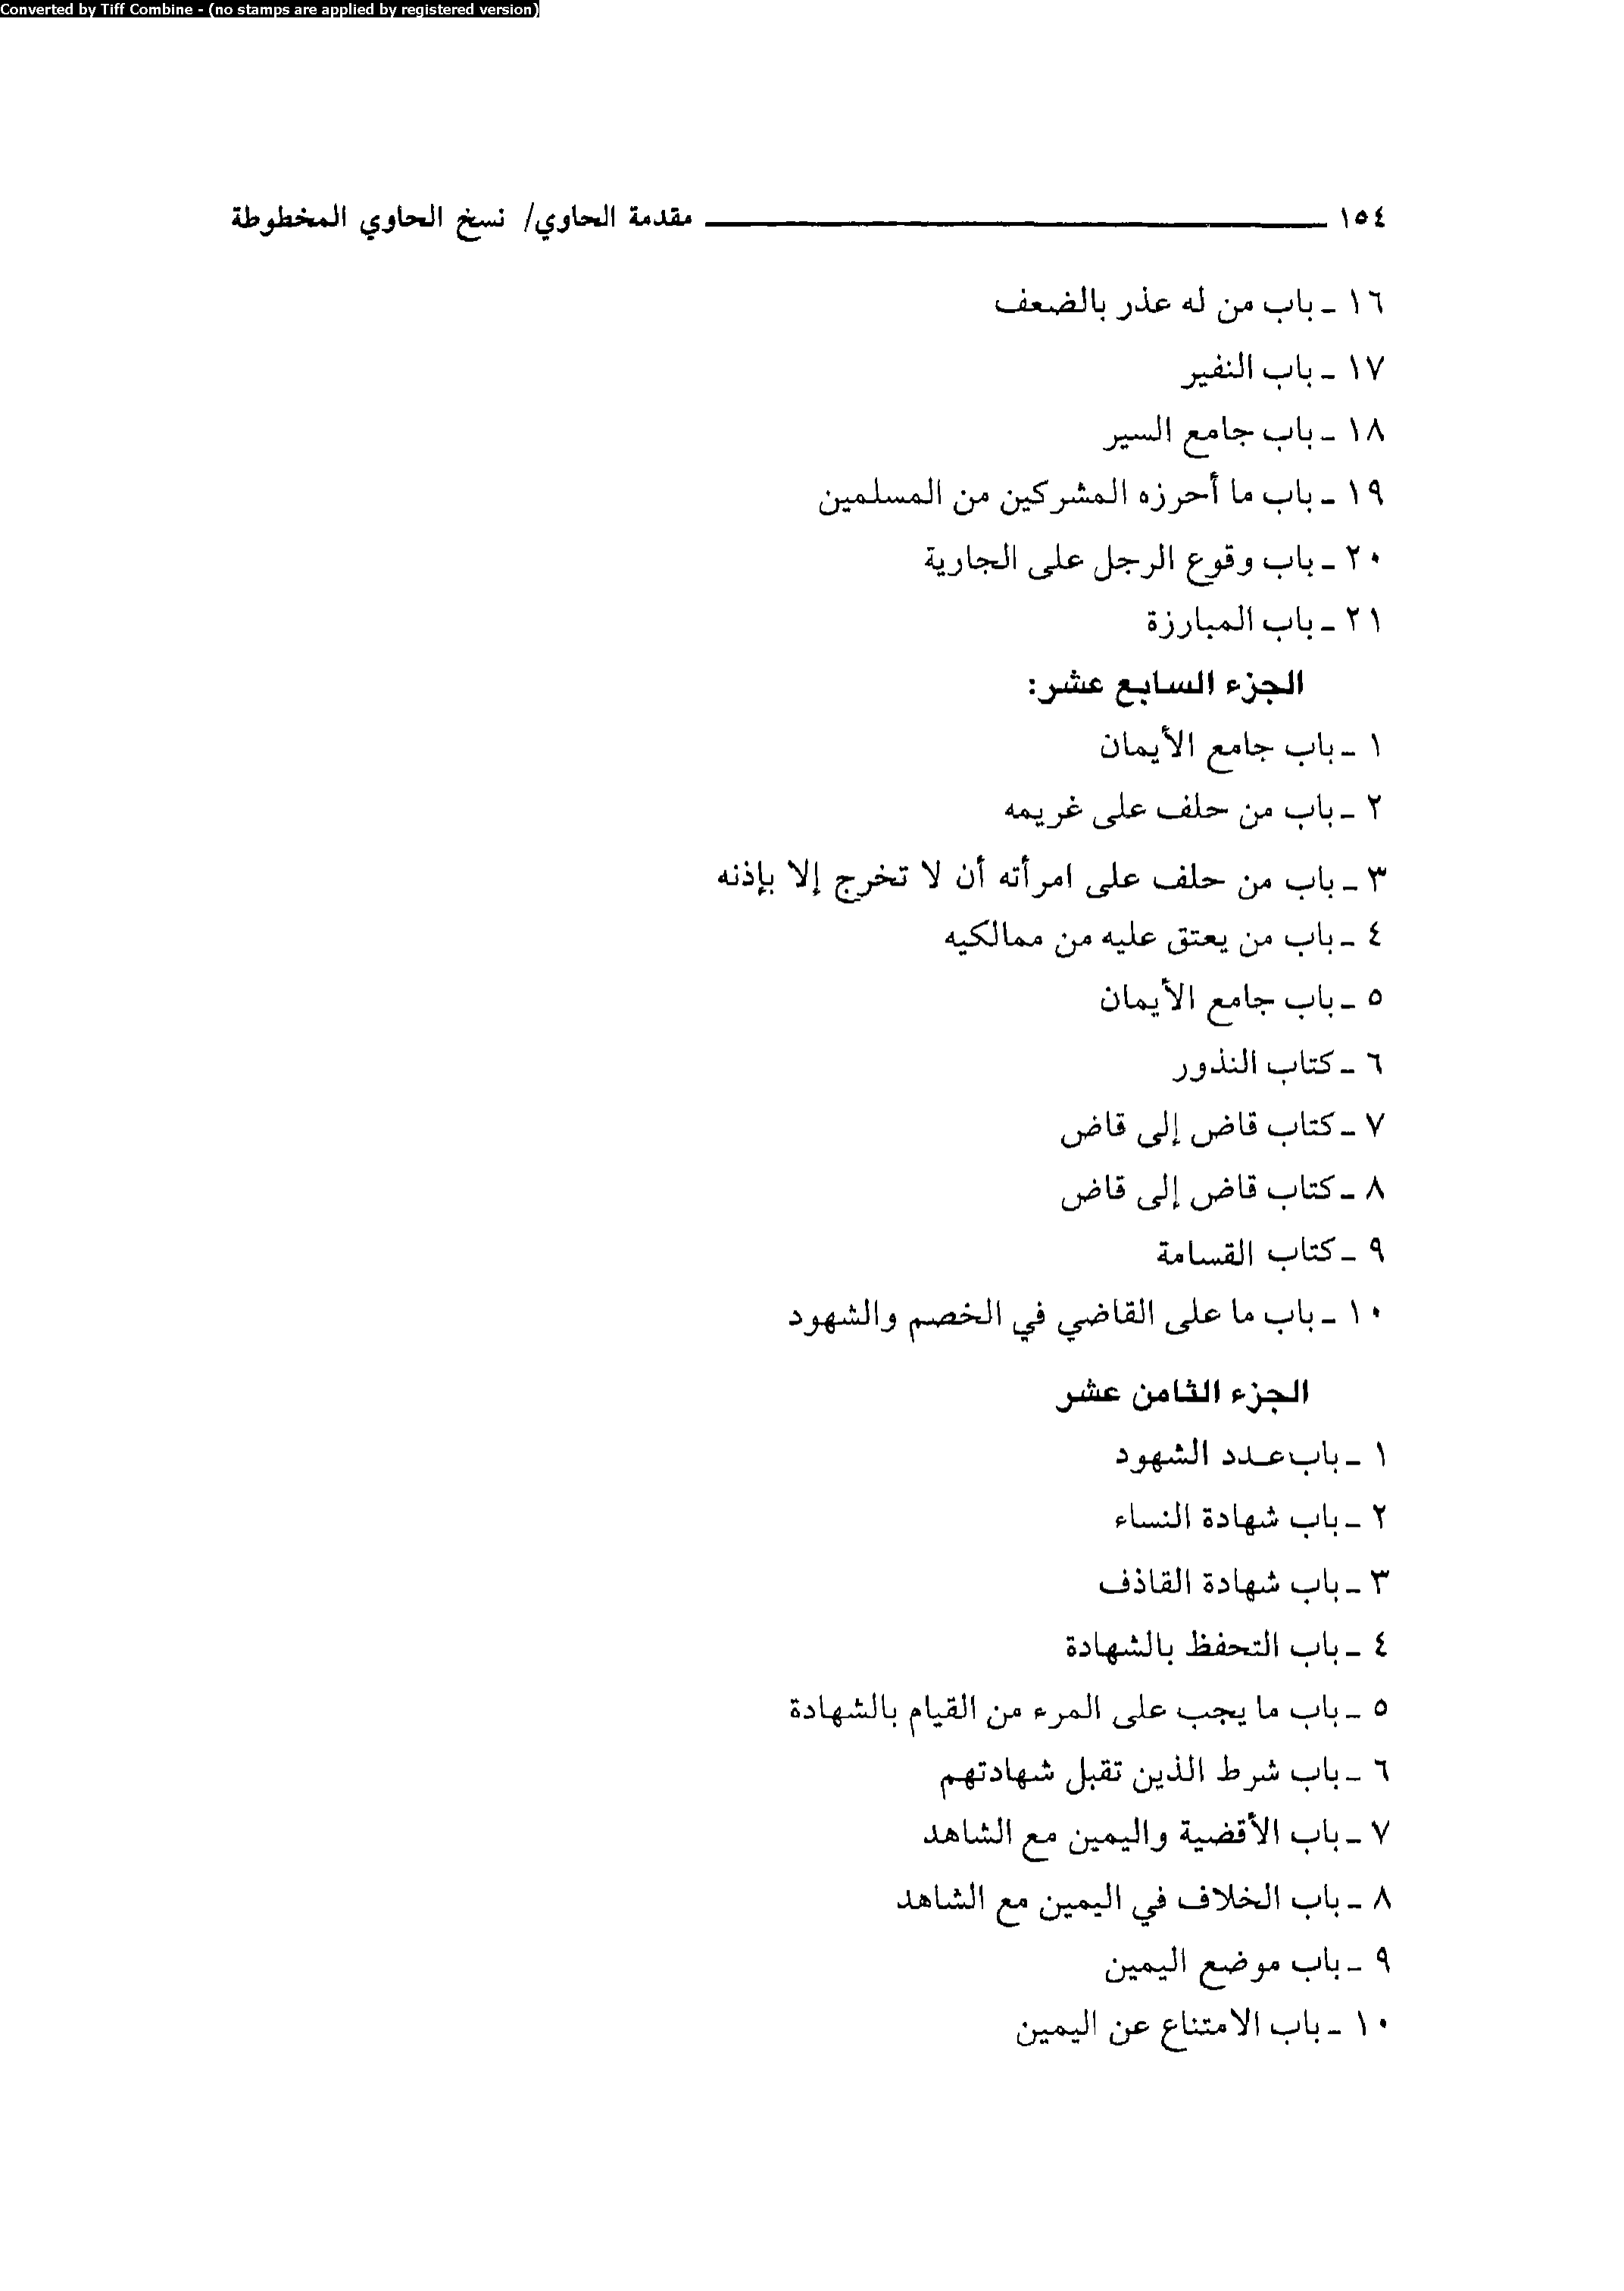 Converted by Tiff Combine - (no stamps are applied by registered version)
١٥٤ مقدمة الحاوي/ نسخ الحاوي المخطوطة
١٦ - باب من له عذر بالضعف
١٧ - باب النفير
١٨ - باب جامع السير
١٩ - باب ما أحرزه المشركين من المسلمين
٢٠ - باب وقوع الرجل على الجارية
٢١ - باب المبارزة
الجزء السابع عشر:
١ - باب جامع الأيمان
٢ - باب من حلف على غريمه
٣ - باب من حلف على امرأته أن لا تخرج إلا بإذنه
٤ - باب من يعتق عليه من ممالكيه
٥ - باب جامع الأيمان
٦ - كتاب النذور
٧ - كتاب قاض إلى قاض
٨ - كتاب قاض إلى قاض
٩ - كتاب القسامة
١٠ - باب ما على القاضي في الخصم والشهود
الجزء الثامن عشر
١ - باب عدد الشهود
٢ - باب شهادة النساء
٣ - باب شهادة القاذف
٤ - باب التحفظ بالشهادة
٥ - باب ما يجب على المرء من القيام بالشهادة
٦ - باب شرط الذين تقبل شهادتهم
٧ - باب الأقضية واليمين مع الشاهد
٨ - باب الخلاف في اليمين مع الشاهد
٩ - باب موضع اليمين
١٠ - باب الامتناع عن اليمين